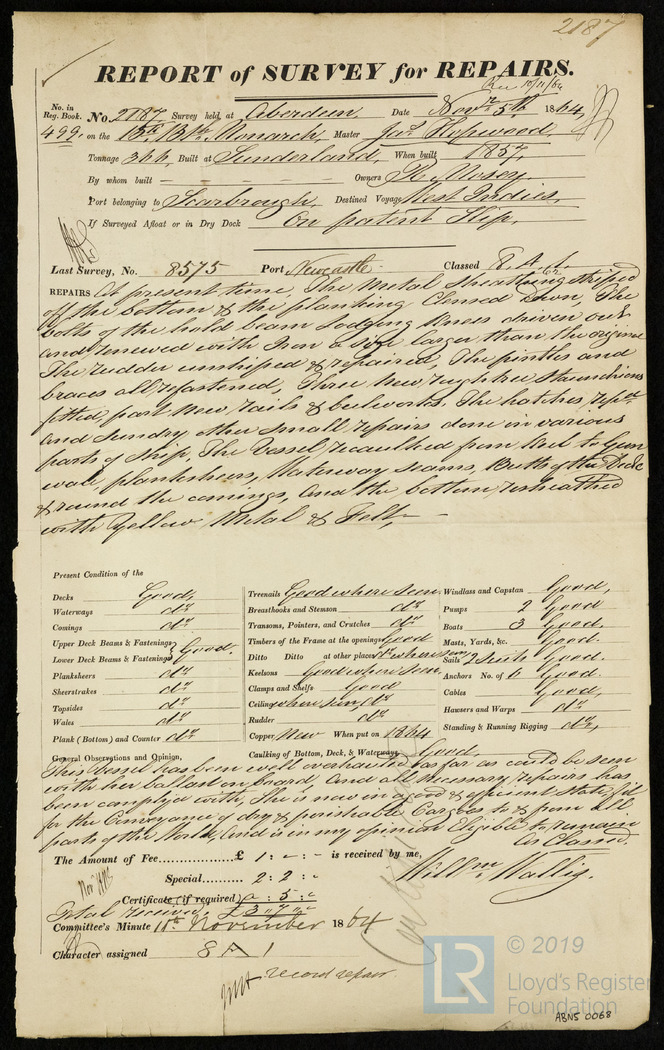 2187
REPORT of SURVEY for REPAIRS.
Rec 10/11/64
No. in Reg. Book. No. 2187 Survey held at Aberdeen, Date Novr. 5th 1864,
499. on the Bk. Monarch, Master Jas. Hopwood,
Tonnage 366, Built at Sunderland, When built 1857,
By whom built Owners H. Mosey
Port belonging to Scarbrough, Destined Voyage West Indies,
If Surveyed Afloat or in Dry Dock On patent Slip,
Last Survey, No. 8575 Port Newcastle Classed 8. A. 1.
REPAIRS At present time, The Metal Sheathing stripped
of the bottom & the planking cleaned down, The
bolts of the hold beam Lodging Knees driven out
and renewed with Iron larger than the original
The rudder unshiped & repaired, The pintles and
braces all refastened, Three New roughtree Staunchions
fitted, part New rails & bulworks, The hatches
and sundry other small repairs done in various
parts of Ship, The Vessel recaulked from Keel to Gun
wale, plantsheers, Waterway seams, Butts of the Deck
& round the comings, and the bottom resheathed
with Yellow Metal & Felt,
Present Condition of the
Decks Good,
Waterways do
Comings do
Upper Deck Beams & Fastenings
Lower Deck Beams & Fastenings } Good.
Planksheers do
Sheerstrakes do
Topsides do
Wales do
Plank (Bottom) and Counter do
Treenails Good where seen
Breasthooks and Stemson do
Transoms, Pointers, and Crutches do
Timbers of the Frame at the openings Good
Ditto Ditto at other places do where seen
Keelsons Good where seen
Clamps and Shelfs Good
Ceiling where seen do
Rudder do
Copper New When put on 1864
Caulking of Bottom, Deck, & Waterways Good,
Windlass and Capstan Good,
Pumps 2 Good
Boats 3 Good.
Masts, Yards, &c. Good
Sails 2 Suits Good.
Anchors No. of 6 Good
Cables Good,
Hawsers and Warps do
Standing & Running Rigging do,
General Observations and Opinion,
This Vessel has been well overhauled as far as could be seen
with her ballast on board and all necessary repairs has
been complyd with, She is now in a good & efficient state, fit
for the Conveyance of dry & perishable Cargoes to & from all
parts of the World, and is in my opinion Eligible to remain
as Classed.
The Amount of Fee £ 1 : - : - is received by me,
Special 2 : 2 : -
Willm. Wallis,
Certificate (if required) - : 5 : -
Total received, £ 3 " 7 " -
Committee's Minute 11th November 1864
Character assigned 8 A 1
record repair.
LR © 2019
Lloyd's Register
Foundation
ABN5 0068